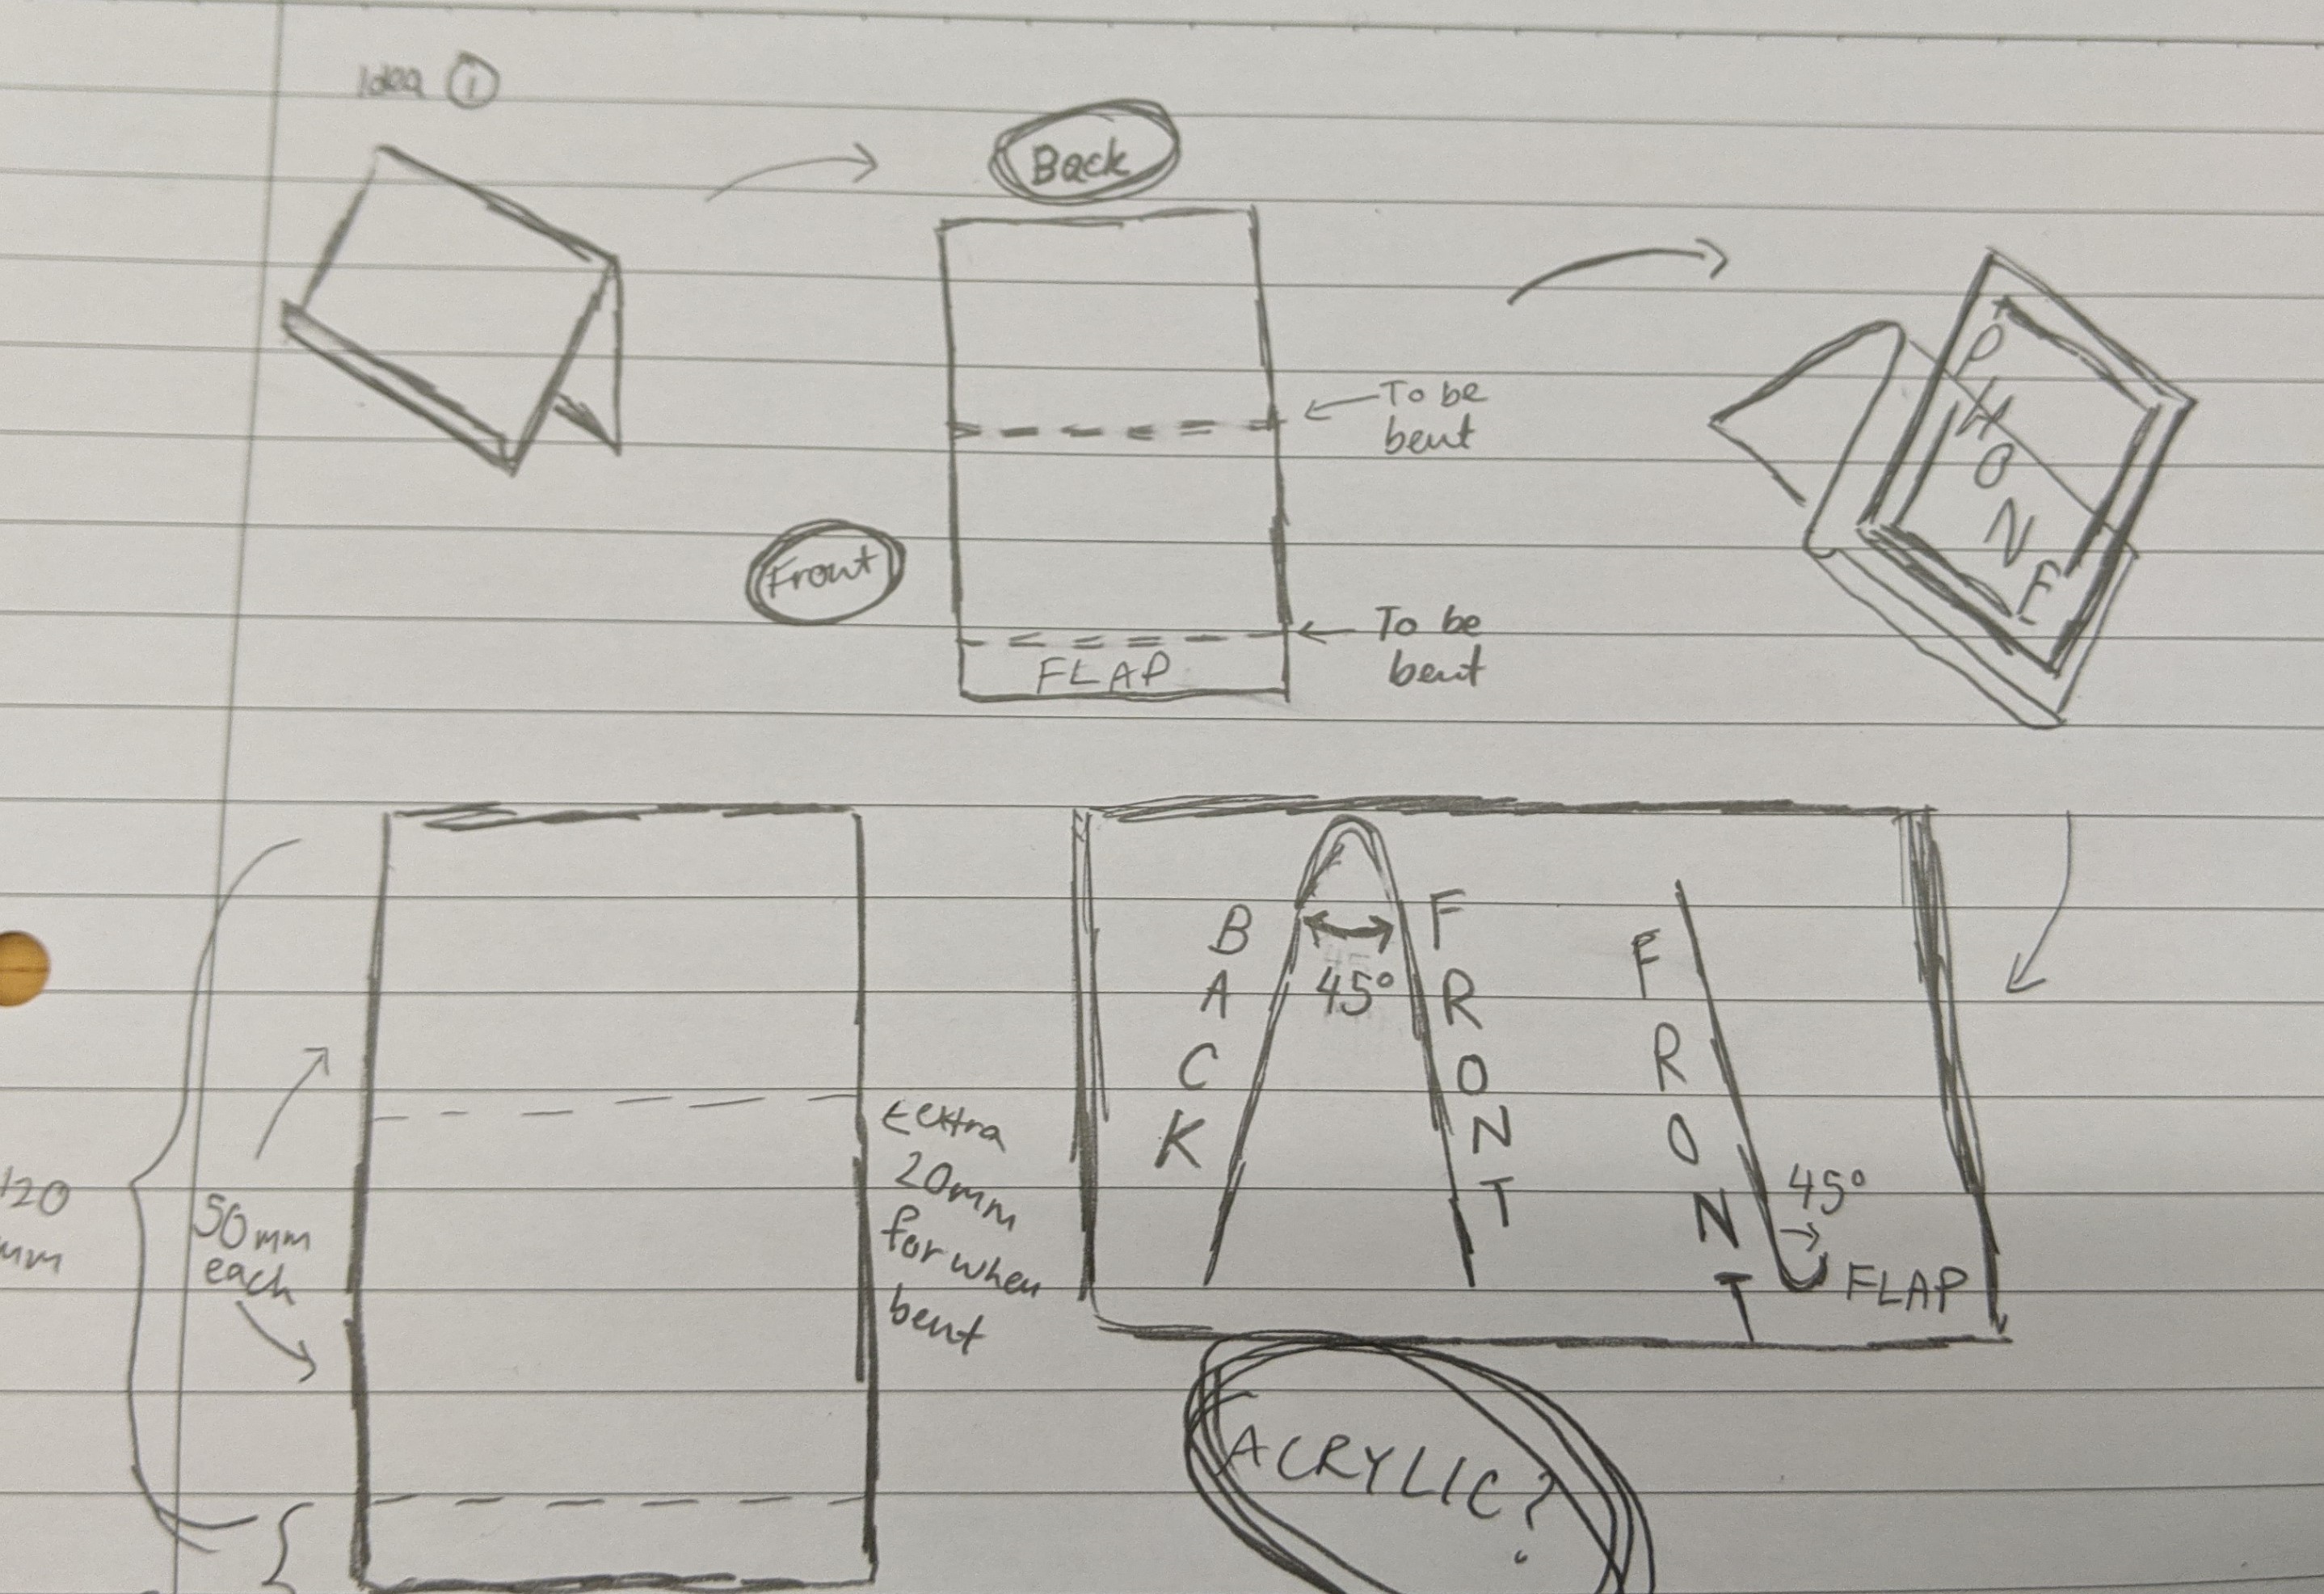 Idea ①
Back
To be
bent
Front
To be
bent
FLAP
PHONE
120
mm
50mm
each
← extra
20mm
for when
bent
BACK
45°
FRONT
FRONT
45°
FLAP
ACRYLIC?